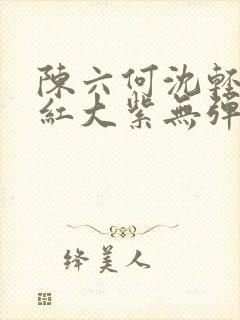 陳六何沈輕
紅大紫無彈
绛美人